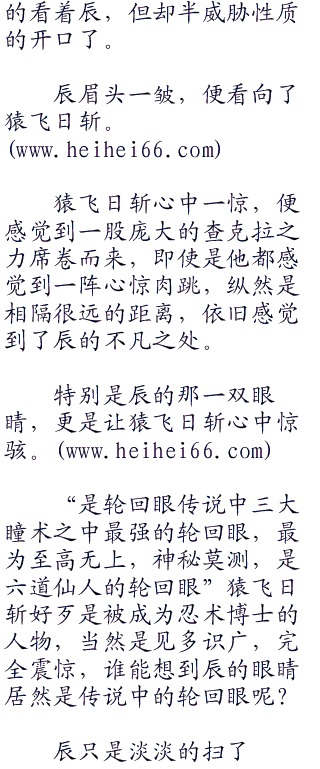 的看着辰，但却半威胁性质
的开口了。
辰眉头一皱，便看向了
猿飞日斩。
(www.heihei66.com)
猿飞日斩心中一惊，便
感觉到一股庞大的查克拉之
力席卷而来，即使是他都感
觉到一阵心惊肉跳，纵然是
相隔很远的距离，依旧感觉
到了辰的不凡之处。
特别是辰的那一双眼
睛，更是让猿飞日斩心中惊
骇。(www.heihei66.com)
“是轮回眼传说中三大
瞳术之中最强的轮回眼，最
为至高无上，神秘莫测，是
六道仙人的轮回眼”猿飞日
斩好歹是被成为忍术博士的
人物，当然是见多识广，完
全震惊，谁能想到辰的眼睛
居然是传说中的轮回眼呢？
辰只是淡淡的扫了